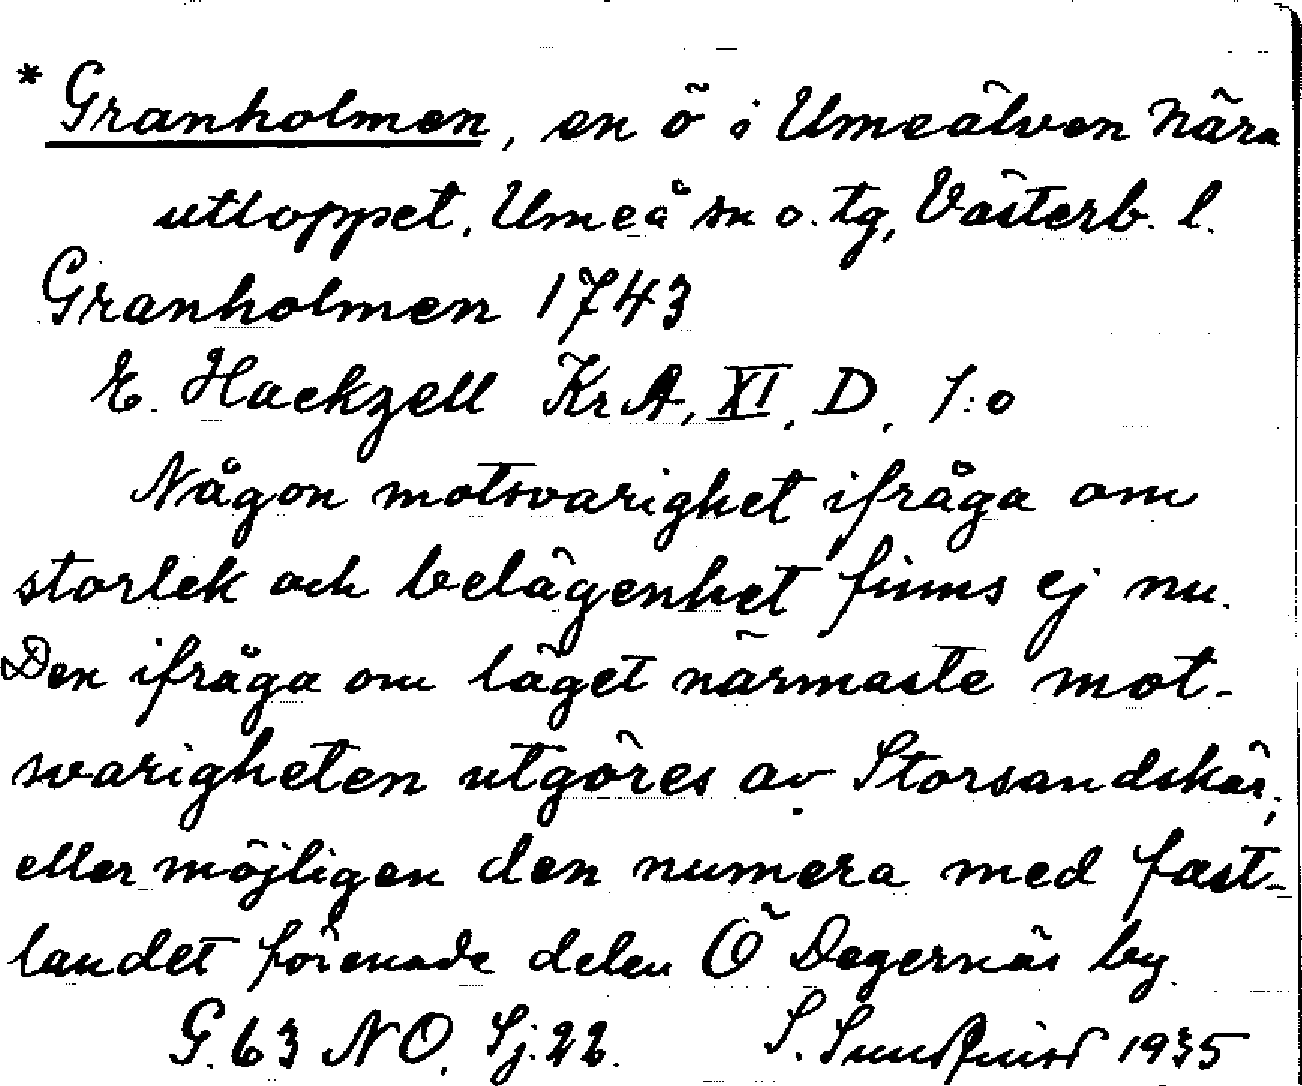 * Granholmen, en ö i Umeälven nära
utloppet, Umeå sn o. tg, Västerb. l.
Granholmen 1743
E. Hackzell KrA, XI. D. 1:o
Någon motsvarighet ifråga om
storlek och belägenhet finns ej nu.
Den ifråga om läget närmaste mot-
svarigheten utgöres av Storsandskär,
eller möjligen den numera med fast-
landet förenade delen Ö Degernäs by.
G. 63 NO. Sj. 22. S. Sundquist 1935